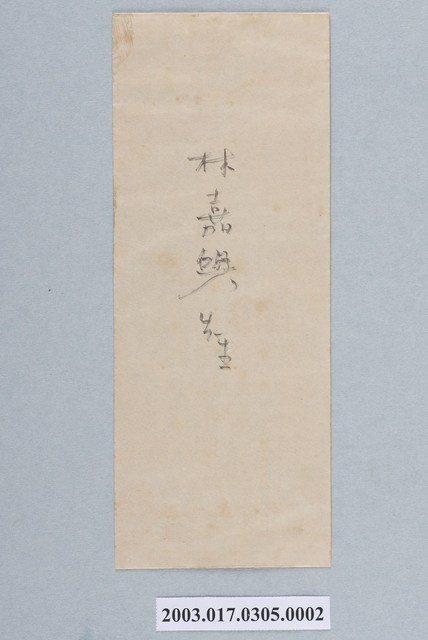 林嘉興先生
2003.017.0305.0002